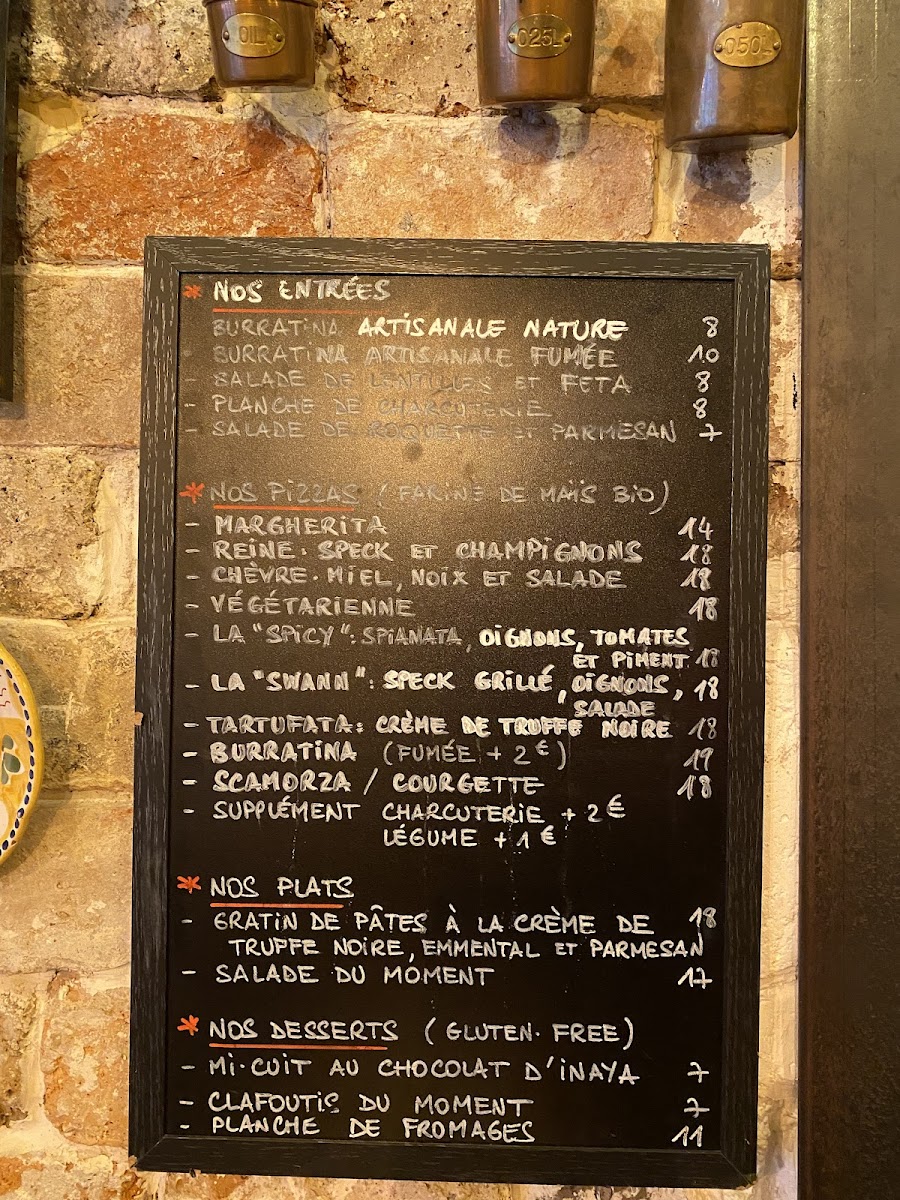 01L
025L
050L
* NOS ENTRÉES
BURRATINA ARTISANALE NATURE 8
BURRATINA ARTISANALE FUMÉE 10
- SALADE DE LENTILLES ET FETA 8
- PLANCHE DE CHARCUTERIE 8
- SALADE DE ROQUETTE ET PARMESAN 7
* NOS PIZZAS (FARINE DE MAÏS BIO)
- MARGHERITA 14
- REINE. SPECK ET CHAMPIGNONS 18
- CHÈVRE. MIEL, NOIX ET SALADE 18
- VÉGÉTARIENNE 18
- LA "SPICY": SPIANATA, OIGNONS, TOMATES
ET PIMENT 18
- LA "SWANN": SPECK GRILLÉ, OIGNONS, 18
SALADE
- TARTUFATA: CRÈME DE TRUFFE NOIRE 18
- BURRATINA (FUMÉE + 2€) 19
- SCAMORZA / COURGETTE 18
- SUPPLÉMENT CHARCUTERIE + 2€
LÉGUME + 1€
* NOS PLATS
- GRATIN DE PÂTES À LA CRÈME DE 18
TRUFFE NOIRE, EMMENTAL ET PARMESAN
- SALADE DU MOMENT 17
* NOS DESSERTS (GLUTEN. FREE)
- MI.CUIT AU CHOCOLAT D'INAYA 7
- CLAFOUTIS DU MOMENT 7
- PLANCHE DE FROMAGES 11